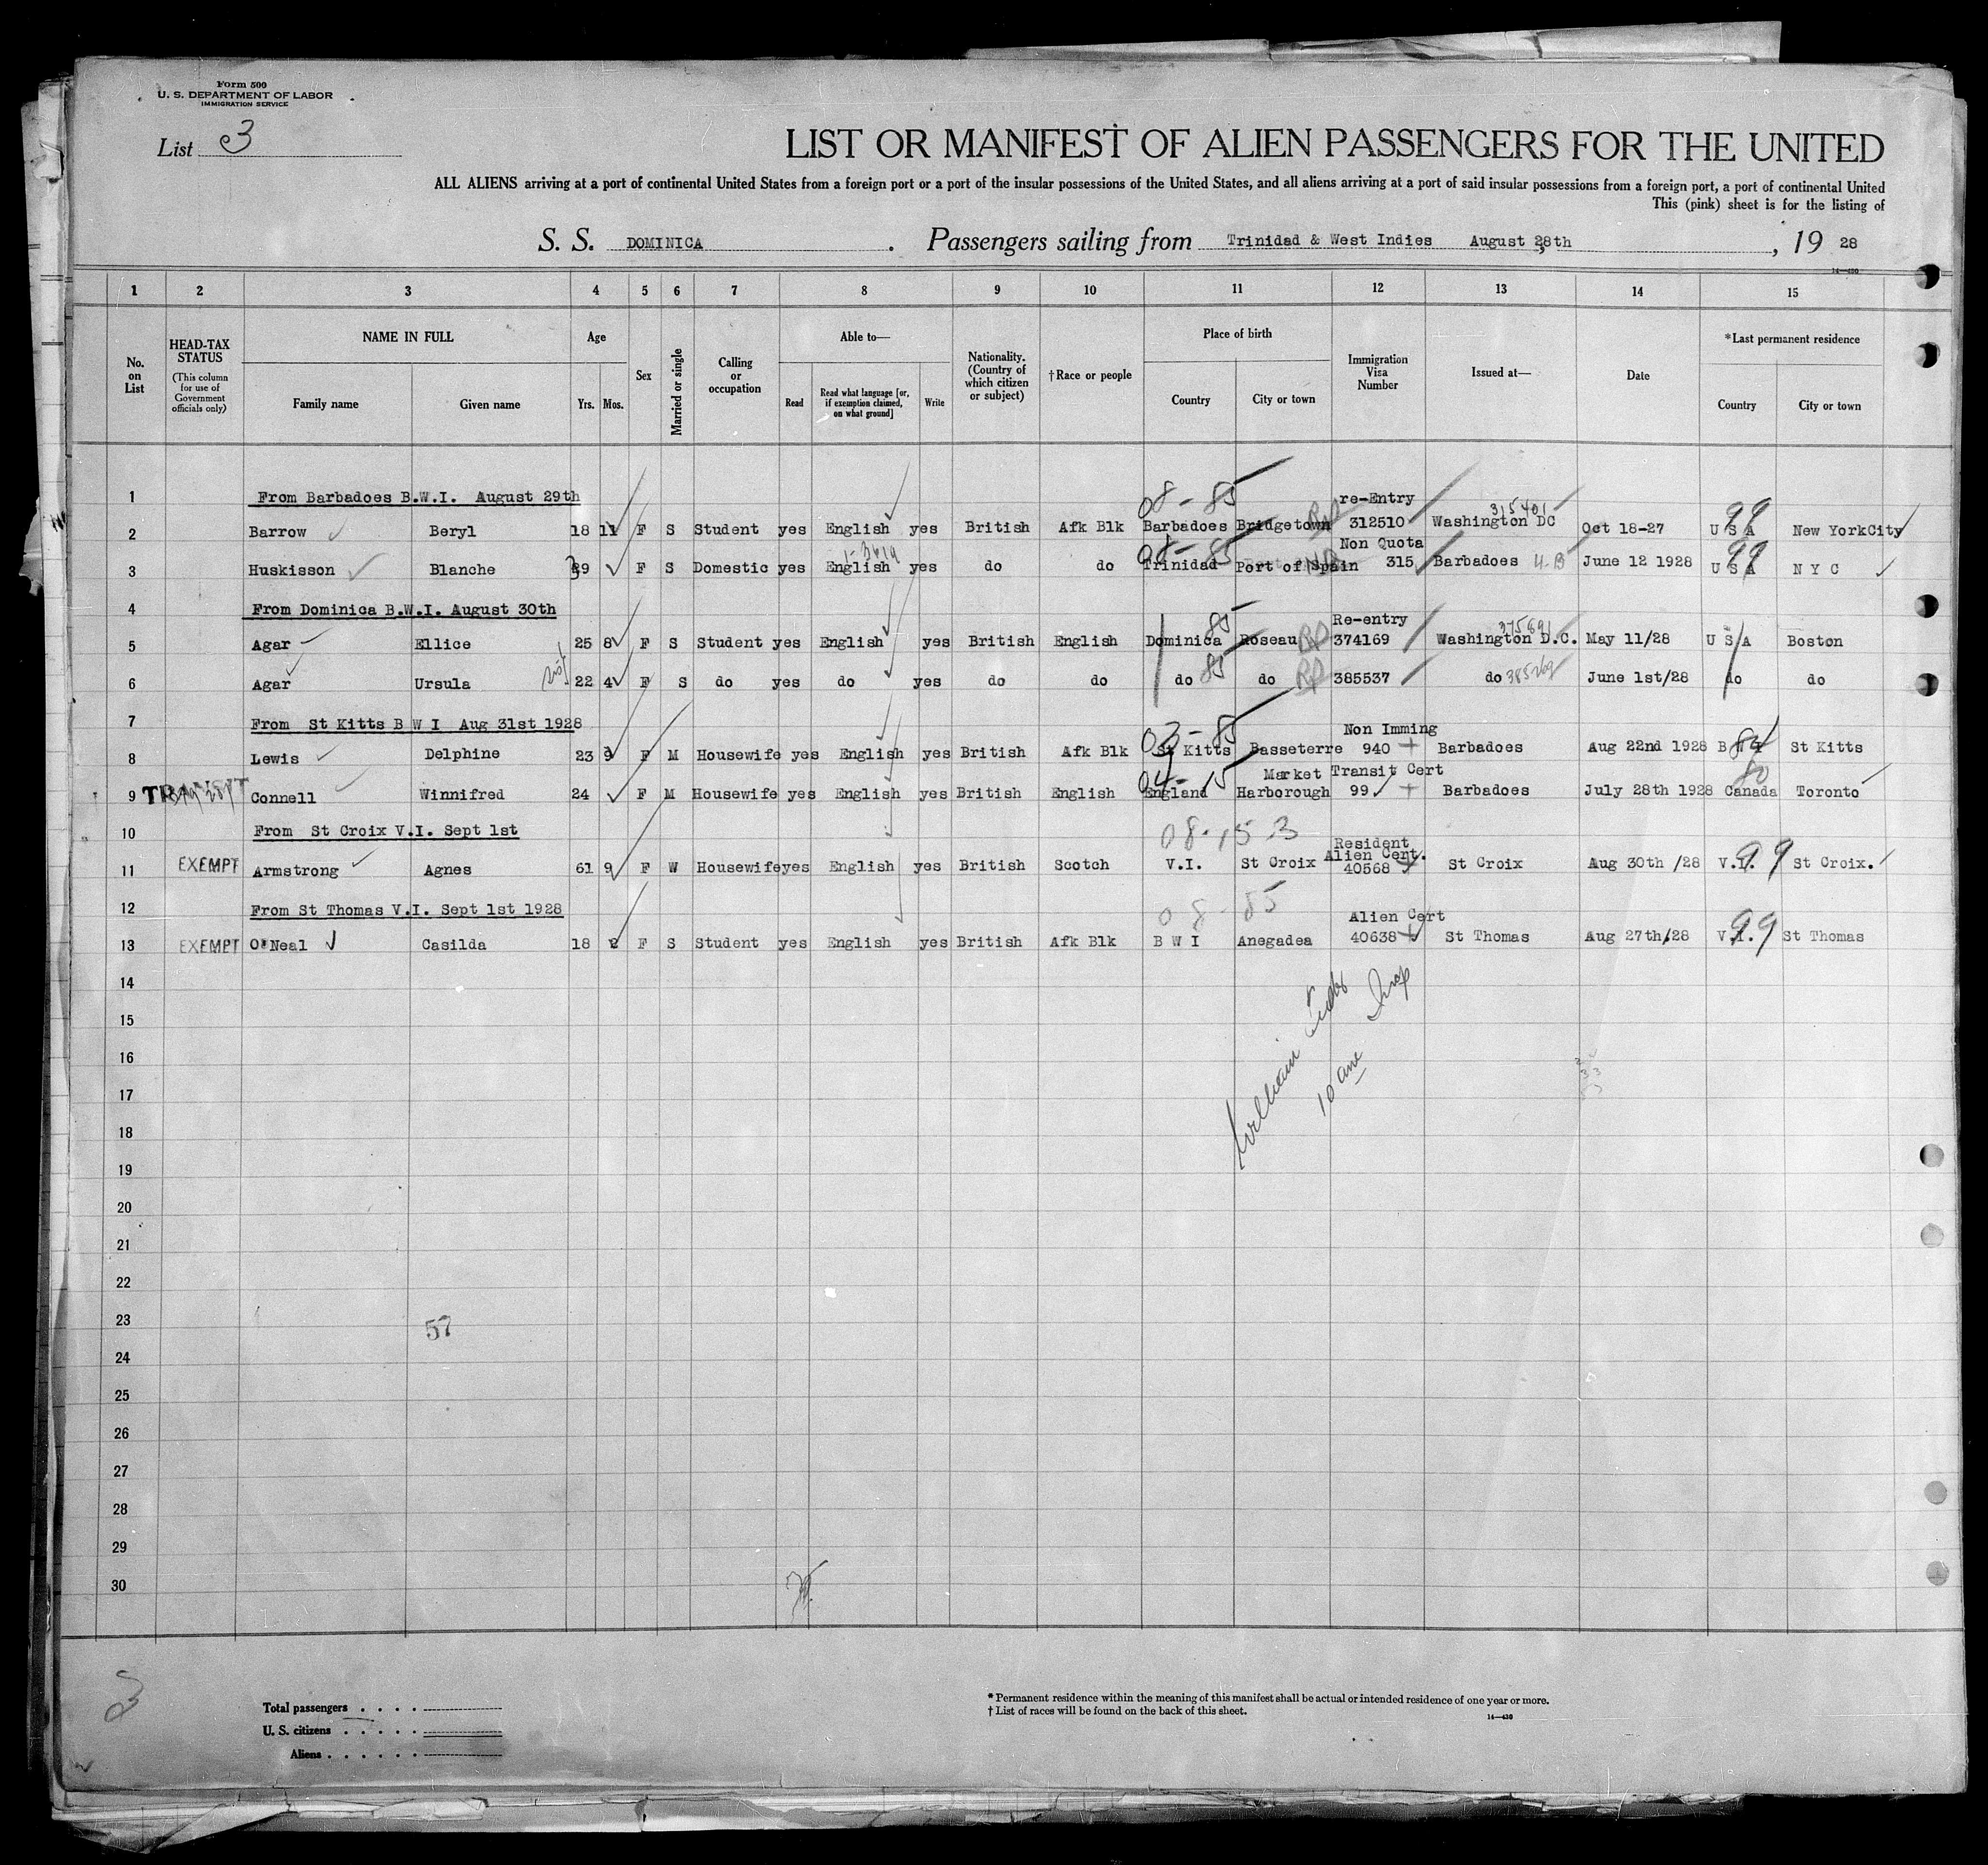 Form 500
U. S. DEPARTMENT OF LABOR
IMMIGRATION SERVICE
List 3
LIST OR MANIFEST OF ALIEN PASSENGERS FOR THE UNITED
ALL ALIENS arriving at a port of continental United States from a foreign port or a port of the insular possessions of the United States, and all aliens arriving at a port of said insular possessions from a foreign port, a port of continental United
This (pink) sheet is for the listing of
S. S. DOMINICA . Passengers sailing from Trinidad & West Indies August 28th , 19 28
14—430
1 2 3 4 5 6 7 8 9 10 11 12 13 14 15
No. on List
HEAD-TAX STATUS (This column for use of Government officials only)
NAME IN FULL Family name Given name
Age Yrs. Mos.
Sex
Married or single
Calling or occupation
Able to— Read Read what language [or, if exemption claimed, on what ground] Write
Nationality. (Country of which citizen or subject)
†Race or people
Place of birth Country City or town
Immigration Visa Number
Issued at—
Date
*Last permanent residence Country City or town
1 From Barbadoes B.W.I. August 29th
08 - 85 re-Entry 315401 99
2 Barrow Beryl 18 11 F S Student yes English yes British Afk Blk Barbadoes Bridgetown 312510 Washington DC Oct 18-27 U S A New YorkCity
08 - 85 Non Quota 99
3 Huskisson Blanche 39 F S Domestic yes English yes do do Trinidad Port of Spain 315 Barbadoes 4-B June 12 1928 U S A N Y C
4 From Dominica B.W.I. August 30th
85 Re-entry 375891
5 Agar Ellice 25 8 F S Student yes English yes British English Dominica Roseau 374169 Washington D.C. May 11/28 U S A Boston
6 Agar Ursula 22 4 F S do yes do yes do do do 85 do 385537 do 385269 June 1st/28 do do
7 From St Kitts B W I Aug 31st 1928
03 - 85 Non Imming 84
8 Lewis Delphine 23 9 F M Housewife yes English yes British Afk Blk St Kitts Basseterre 940 Barbadoes Aug 22nd 1928 B W I St Kitts
04 - 15 Market Transit Cert 80
9 TRANSIT Connell Winnifred 24 F M Housewife yes English yes British English England Harborough 99 Barbadoes July 28th 1928 Canada Toronto
10 From St Croix V.I. Sept 1st
08-153 Resident Alien Cert. 99
11 EXEMPT Armstrong Agnes 61 9 F W Housewife yes English yes British Scotch V.I. St Croix 40568 St Croix Aug 30th /28 V.I. St Croix.
12 From St Thomas V.I. Sept 1st 1928
08 - 85 Alien Cert 99
13 EXEMPT O'Neal Casilda 18 F S Student yes English yes British Afk Blk B W I Anegadea 40638 St Thomas Aug 27th/28 V.I. St Thomas
14
15
16
17
18
19
20
21
22
23
57
24
25
26
27
28
29
30
3
Total passengers . . . .
U. S. citizens . . . . .
Aliens . . . . . .
* Permanent residence within the meaning of this manifest shall be actual or intended residence of one year or more.
† List of races will be found on the back of this sheet.
14—430